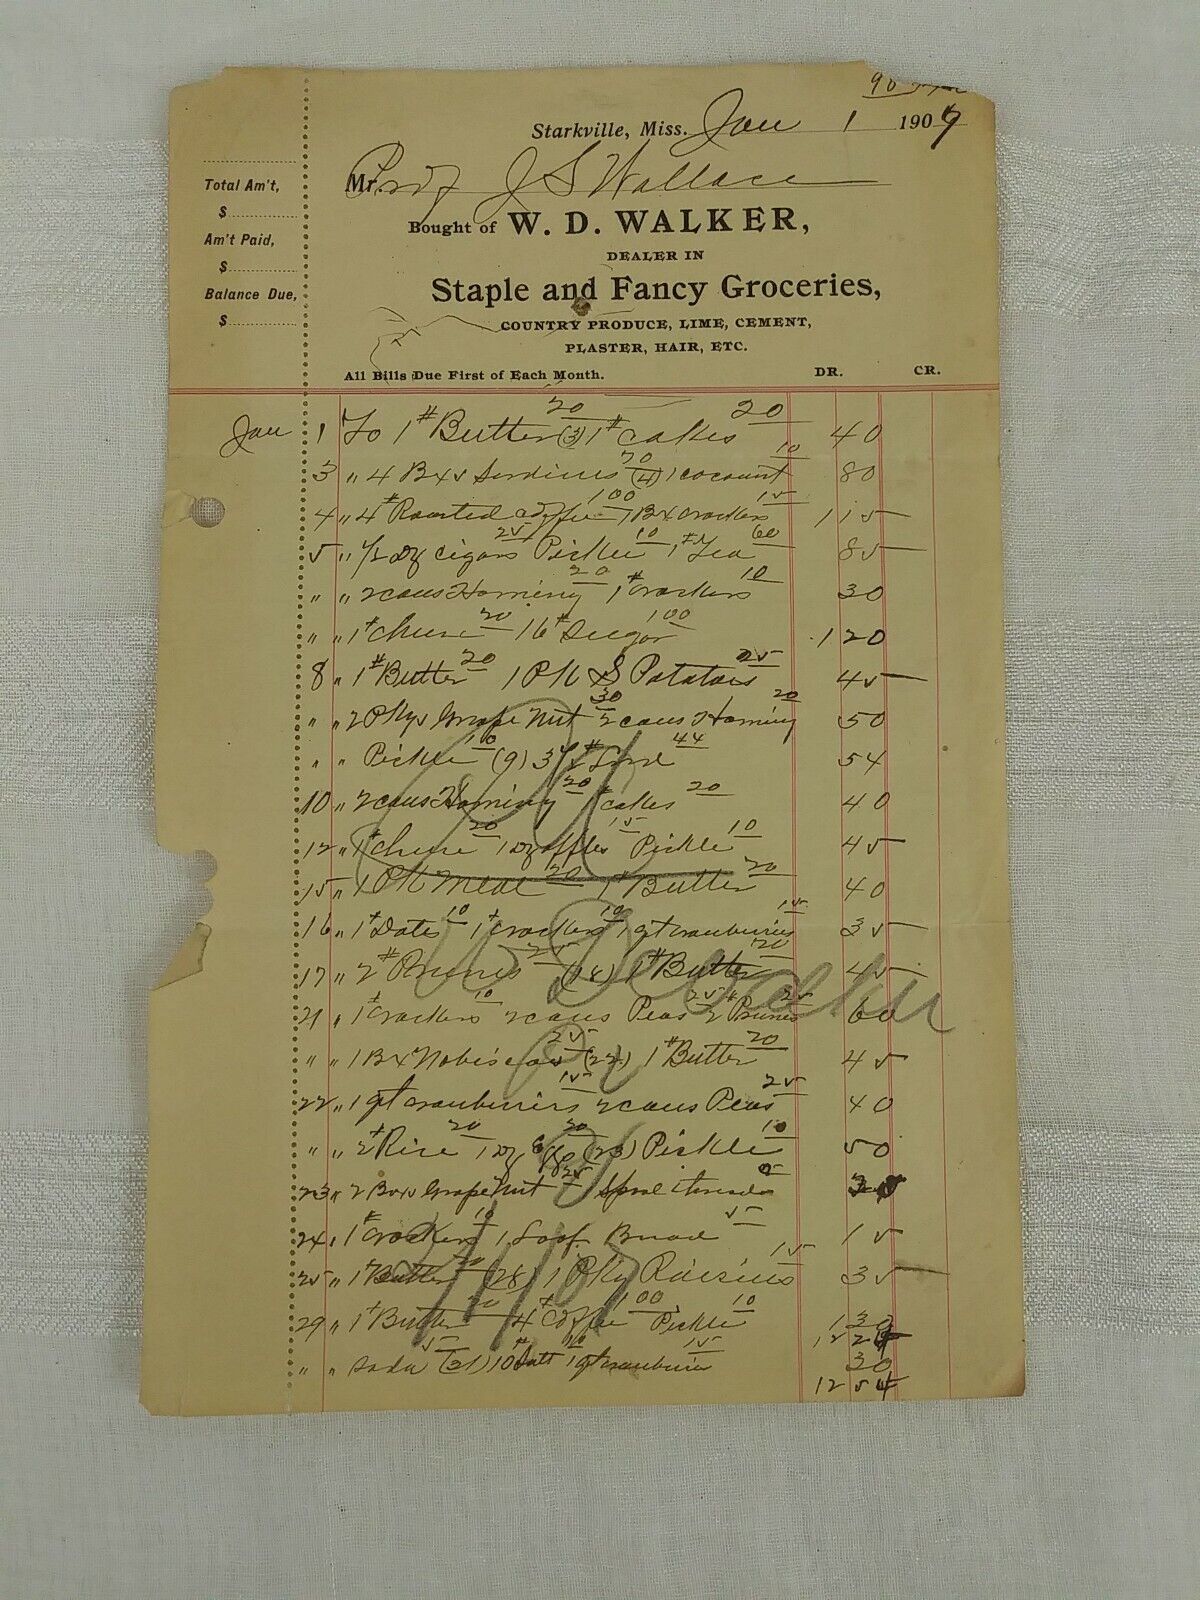 Starkville, Miss. Jan 1 1907
Total Am't,
$
Am't Paid,
$
Balance Due,
$
Mr. Prof J S Wallace
Bought of W. D. WALKER,
DEALER IN
Staple and Fancy Groceries,
COUNTRY PRODUCE, LIME, CEMENT,
PLASTER, HAIR, ETC.
All Bills Due First of Each Month. DR. CR.
Jan 1 To 1 # Butter 20 (3) 1 # cakes 20 40
3 " 4 Bxs Sardines 70 (4) 1 cocoanut 10 80
4 " 4 # Roasted Coffee 1 00 1 Bx crackers 15 1 15
5 " 1/2 Dz cigars 25 Pickle 10 1 # Tea 60 85
" " 2 cans Hominy 20 1 # crackers 10 30
" " 1 # Cheese 20 16 # Sugar 1 00 1 20
8 " 1 # Butter 20 1 Pk S Potatoes 25 45
" " 2 Pkgs Grape Nut 30 2 cans Hominy 20 50
" " Pickle 10 (9) 3 1/2 # Lard 44 54
10 " 2 cans Hominy 20 1 # cakes 20 40
12 " 1 # Cheese 20 1 Dz apples 15 Pickle 10 45
15 " 1 Pk Meal 20 1 # Butter 20 40
16 " 1 # Dates 10 1 # crackers 10 1 qt cranberries 15 35
17 " 2 # Prunes 25 (18) 1 # Butter 20 45
21 " 1 # crackers 10 2 cans Peas 25 2 # Prunes 25 60
" " 1 Bx Nabiscos 25 (22) 1 # Butter 20 45
22 " 1 qt cranberries 15 2 cans Peas 25 40
" " 2 # Rice 20 1 Dz Eggs 20 (23) Pickle 10 50
23 " 2 Boxs Grape Nut 25 Spool thread 5
24 " 1 # crackers 10 1 Loaf Bread 5 15
25 " 1 # Butter 20 (28) 1 Pkg Raisins 15 35
29 " 1 # Butter 20 4 # Coffee 1 00 Pickle 10 1 30
12 24
" " Soda 5 (31) 10 # Salt 10 1 qt cranberries 15 30
12 54